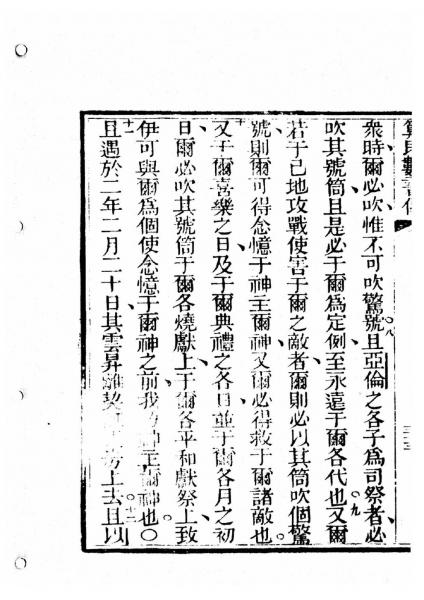 算民數書傳
衆時爾必吹惟不可吹驚號且亞倫之各子爲司祭者必
吹其號筒且是必于爾爲定例至永遠于爾各代也又爾
若于己地攻戰使害于爾之敵者爾則必以其筒吹個驚
號則爾可得念憶于神主爾神又爾必得救于爾諸敵也
又于爾喜樂之日及于爾典禮之各日並于爾各月之初
日爾必吹其號筒于爾各燒獻上于爾各平和獻祭上致
伊可與爾爲個使念憶于爾神之前我 神主爾神也○
且遇於二年二月二十日其雲昇離契 上去且以